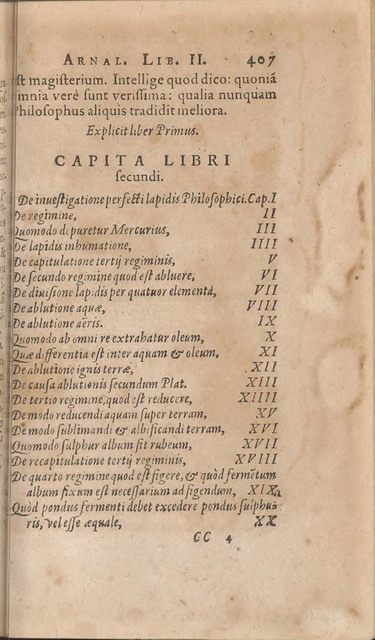 ARNAL. LIB. II. 407
st magisterium. Intellige quod dico: quoniā
mnia verè sunt verissima: qualia nunquam
Philosophus aliquis tradidit meliora.
Explicit liber Primus.
CAPITA LIBRI
secundi.
De inuestigatione perfecti lapidis Philosophici. Cap. I
De regimine, II
Quomodo depuretur Mercurius, III
De lapidis inhumatione, IIII
De capitulatione tertij regiminis, V
De secundo regimine quod est abluere, VI
De diuisione lapidis per quatuor elementa, VII
De ablutione aquæ, VIII
De ablutione aëris. IX
Quomodo ab omni re extrahatur oleum, X
Quæ differentia est inter aquam & oleum, XI
De ablutione ignis terræ, XII
De causa ablutionis secundum Plat. XIII
De tertio regimine, quod est reducere, XIIII
De modo reducendi aquam super terram, XV
De modo sublimandi & albificandi terram, XVI
Quomodo sulphur album fit rubeum, XVII
De recapitulatione tertij regiminis, XVIII
De quarto regimine quod est figere, & quòd fermētum
album fixum est necessarium ad figendum, XIX
Quòd pondus fermenti debet excedere pondus sulphu-
ris, vel esse æquale, XX
CC 4